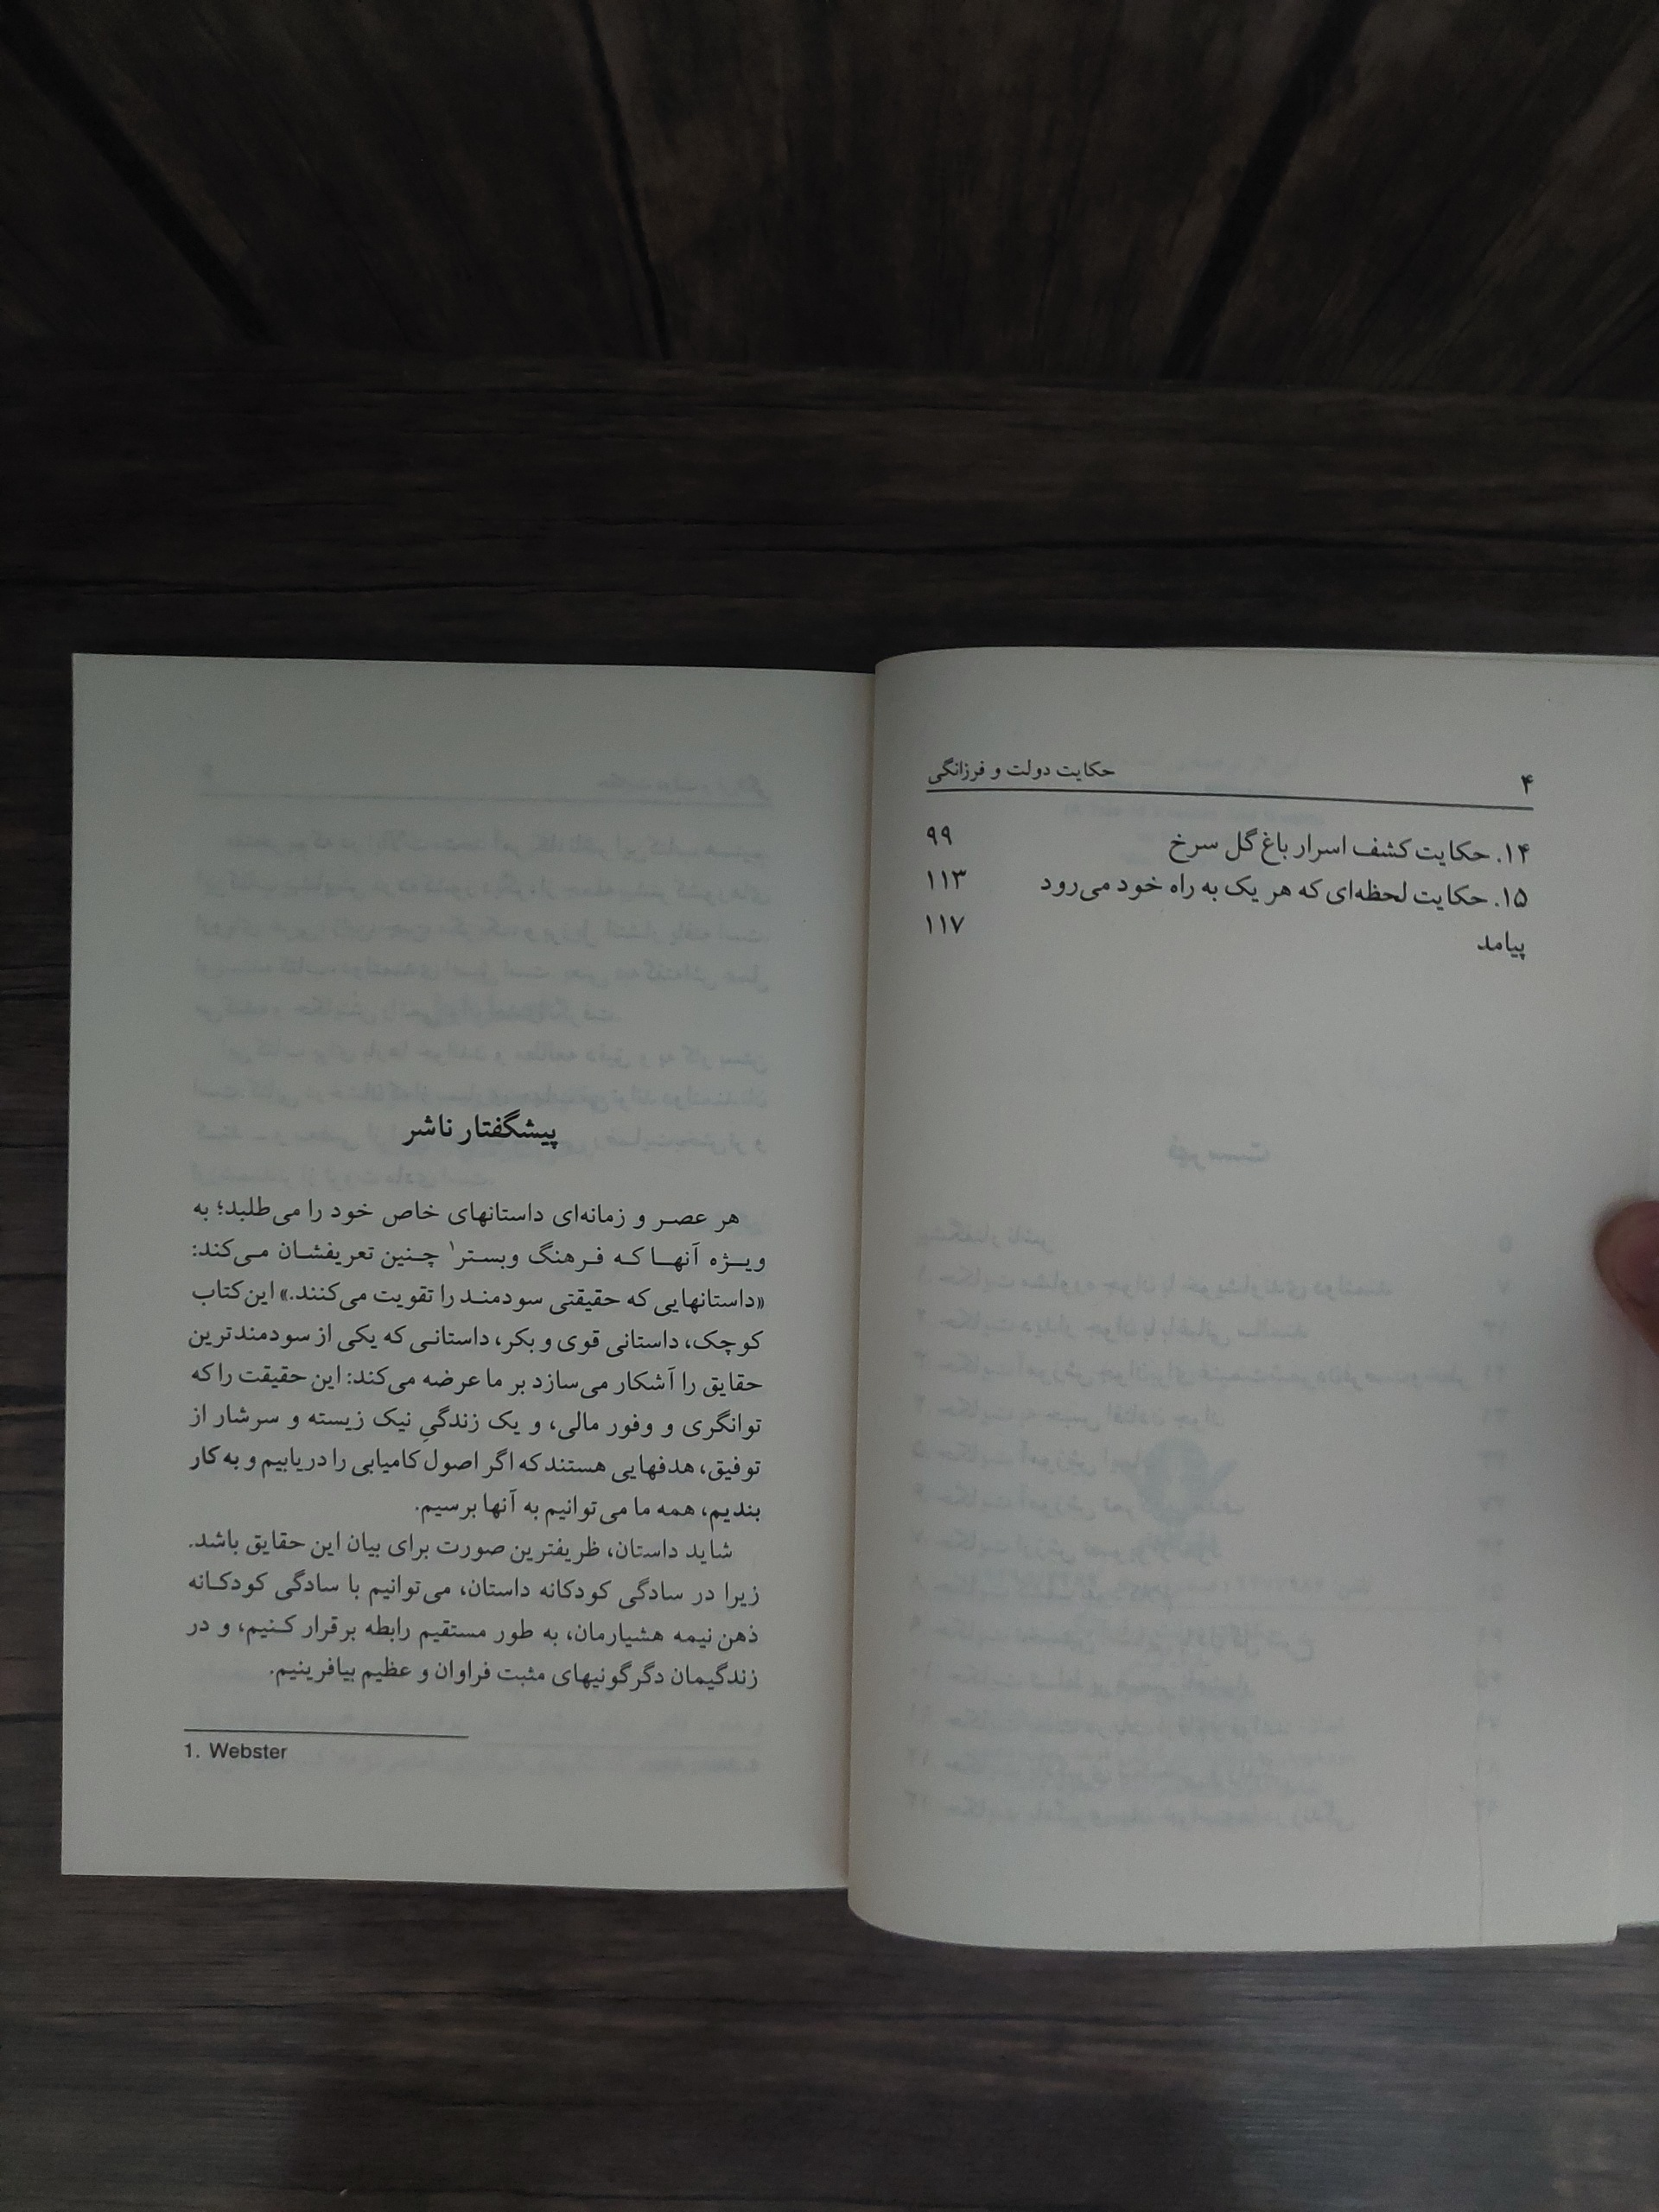 ۴
حکایت دولت و فرزانگی
۱۴. حکایت کشف اسرار باغ گل سرخ ۹۹
۱۵. حکایت لحظه‌ای که هر یک به راه خود می‌رود ۱۱۳
پیامد ۱۱۷
پیشگفتار ناشر
هر عصر و زمانه‌ای داستانهای خاص خود را می‌طلبد؛ به
ویژه آنها که فرهنگ وبستر۱ چنین تعریفشان می‌کند:
«داستانهایی که حقیقتی سودمند را تقویت می‌کنند.» این کتاب
کوچک، داستانی قوی و بکر، داستانی که یکی از سودمندترین
حقایق را آشکار می‌سازد بر ما عرضه می‌کند: این حقیقت را که
توانگری و وفور مالی، و یک زندگیِ نیک زیسته و سرشار از
توفیق، هدفهایی هستند که اگر اصول کامیابی را دریابیم و به کار
بندیم، همه ما می‌توانیم به آنها برسیم.
شاید داستان، ظریفترین صورت برای بیان این حقایق باشد.
زیرا در سادگی کودکانه داستان، می‌توانیم با سادگی کودکانه
ذهن نیمه هشیارمان، به طور مستقیم رابطه برقرار کنیم، و در
زندگیمان دگرگونیهای مثبت فراوان و عظیم بیافرینیم.
1. Webster